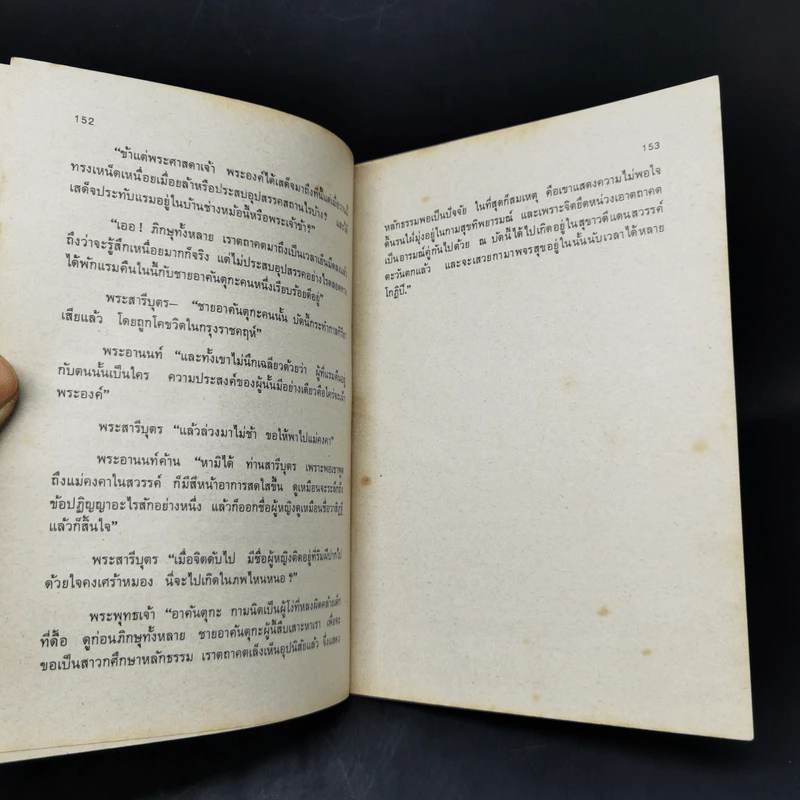 152
“ข้าแต่พระศาสดาเจ้า พระองค์ได้เสด็จมาถึงที่นี้แต่
ทรงเหน็ดเหนื่อยเมื่อยล้าหรือประสบอุปสรรคสถานไรบ้าง? และได้
เสด็จประทับแรมอยู่ในบ้านช่างหม้อนี้หรือพระเจ้าข้า?”
“เออ! ภิกษุทั้งหลาย เราตถาคตมาถึงเป็นเวลาเย็นมืดลงแล้ว
ถึงว่าจะรู้สึกเหนื่อยมากก็จริง แต่ไม่ประสบอุปสรรคอย่างไรตลอด
ได้พักแรมคืนในนี้กับชายอาคันตุกะคนหนึ่งเรียบร้อยดีอยู่”
พระสารีบุตร— “ชายอาคันตุกะคนนั้น บัดนี้กระทำกาลกิริยา
เสียแล้ว โดยถูกโคขวิดในกรุงราชคฤห์”
พระอานนท์ “และทั้งเขาไม่นึกเฉลียวด้วยว่า ผู้ที่แรมคืนอยู่
กับตนนั้นเป็นใคร ความประสงค์ของผู้นั้นมีอย่างเดียวคือใคร่จะเฝ้า
พระองค์”
พระสารีบุตร “แล้วล่วงมาไม่ช้า ขอให้พาไปแม่คงคา”
พระอานนท์ค้าน “หามิได้ ท่านสารีบุตร เพราะพอเขาพูด
ถึงแม่คงคาในสวรรค์ ก็มีสีหน้าอาการสดใสขึ้น ดูเหมือนจะระลึกถึง
ข้อปฏิญญาอะไรสักอย่างหนึ่ง แล้วก็ออกชื่อผู้หญิงดูเหมือนชื่อวาสิฏฐี
แล้วก็สิ้นใจ”
พระสารีบุตร “เมื่อจิตดับไป มีชื่อผู้หญิงติดอยู่ที่ริมฝีปากไป
ด้วยใจคงเศร้าหมอง นี่จะไปเกิดในภพไหนหนอ?”
พระพุทธเจ้า “อาคันตุกะ กามนิตเป็นผู้โง่ที่หลงผิดคล้ายเด็ก
ที่ดื้อ ดูก่อนภิกษุทั้งหลาย ชายอาคันตุกะผู้นี้สืบเสาะหาเรา เพื่อจะ
ขอเป็นสาวกศึกษาหลักธรรม เราตถาคตเล็งเห็นอุปนิสัยแล้ว จึงแสดง
153
หลักธรรมพอเป็นปัจจัย ในที่สุดก็สมเหตุ คือเขาแสดงความไม่พอใจ
ดิ้นรนใฝ่มุ่งอยู่ในกามสุขทิพยารมณ์ และเพราะจิตยึดหน่วงเอาตถาคต
เป็นอารมณ์คู่กันไปด้วย ณ บัดนี้ได้ไปเกิดอยู่ในสุขาวดีแดนสวรรค์
ตะวันตกแล้ว และจะเสวยกามาพจรสุขอยู่ในนั้นนับเวลาได้หลาย
โกฏิปี.”